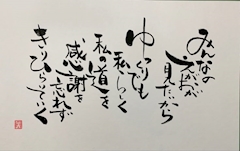 みんなの
えがおが
見たいから
ゆっくりでも
私らしく
私の道を
感謝を
忘れず
きりひらいていく